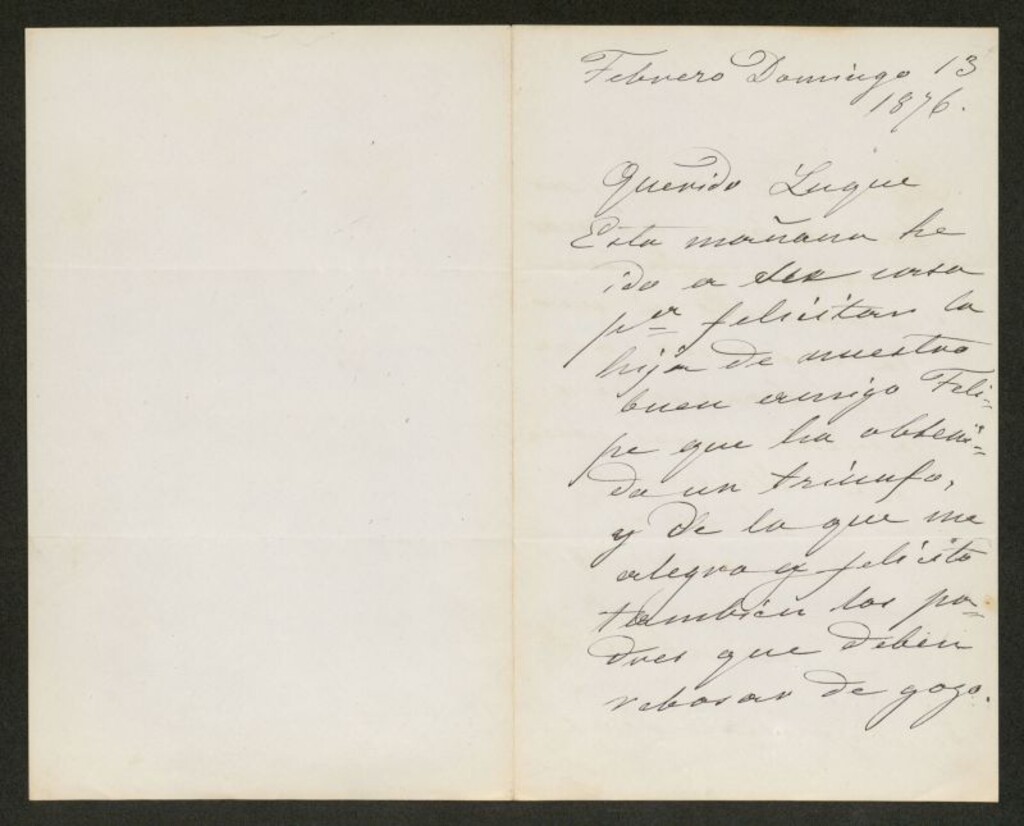 Febrero Domingo 13
1876.
Querido Luque
Esta mañana he
ido a casa
pª felicitar la
hija de nuestro
buen amigo Feli-
pe que ha obteni-
do un triunfo,
y de lo que me
alegro y felicito
tambien los pa-
dres que deben
rebosar de gozo.